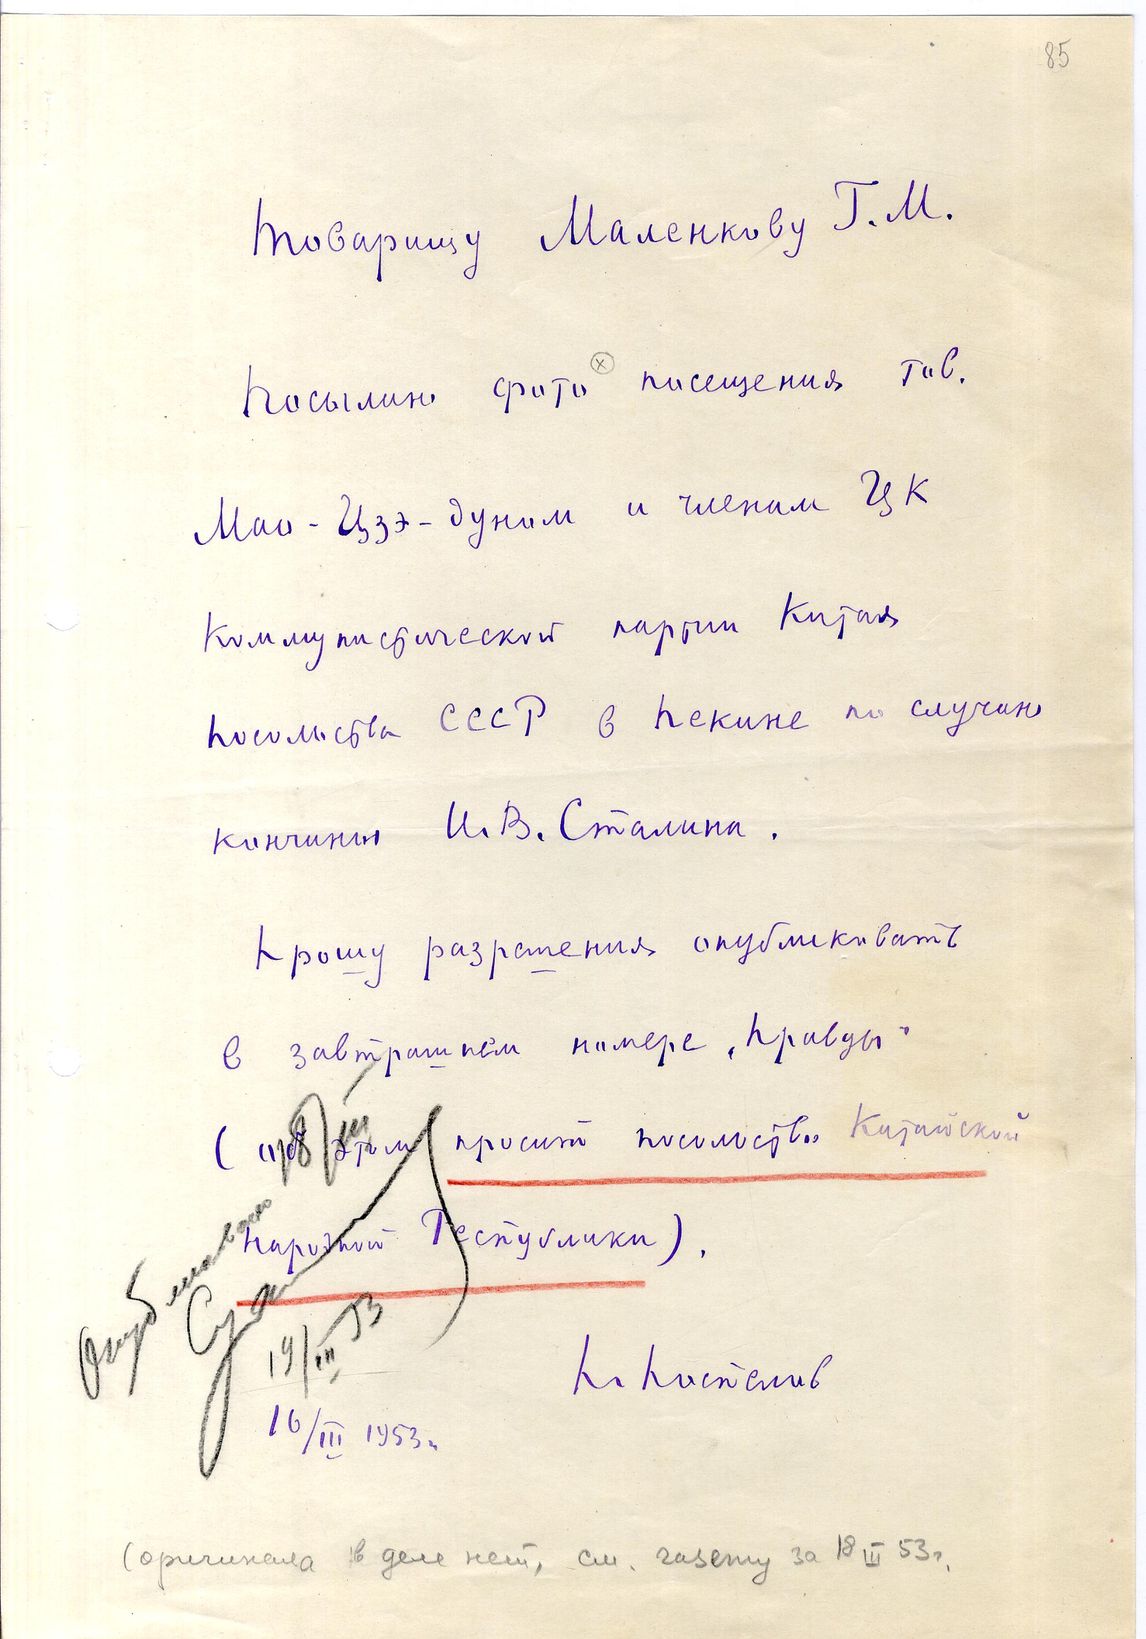 85
Товарищу Маленкову Г.М.
Посылаю фото (x) посещения тов.
Мао-Цзэ-дуном и членам ЦК
Коммунистической партии Китая
посольства СССР в Пекине по случаю
кончины И.В. Сталина.
Прошу разрешения опубликовать
в завтрашнем номере „Правды"
(об этом просит посольство Китайской
Народной Республики).
П. Поспелов
16/III 1953г.
Опубликовано 18/III
19/III 53
(оригинала в деле нет, см. газету за 18 III 53г.